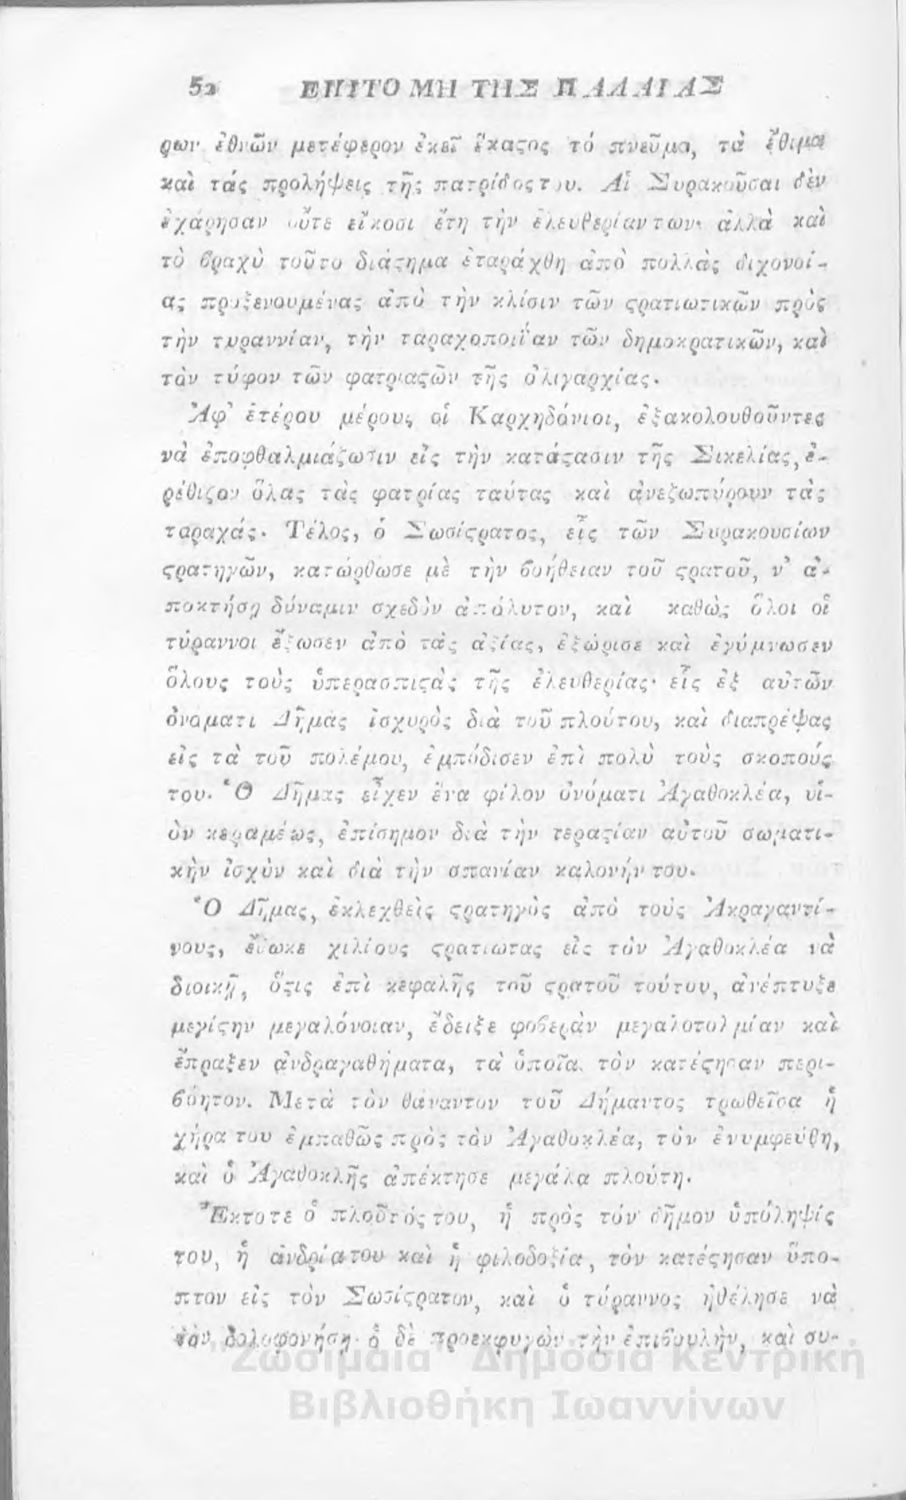 52 ΕΠΙΤΟΜΗ ΤΗΣ ΠΑΛΑΙΑΣ
ρων ἐθνῶν μετέφερον ἐκεῖ ἕκαςος τό πνεῦμα, τὰ ἔθιμα
καὶ τάς προλήψεις τῆς πατρίδος του. Αἱ Συρακοῦσαι δὲν
ἐχάρησαν οὔτε εἴκοσι ἔτη τὴν ἐλευθερίαν των· ἀλλὰ καὶ
τὸ βραχὺ τοῦτο διάςημα ἐταράχθη ἀπὸ πολλὰς διχονοί-
ας προξενουμένας ἀπὸ τὴν κλίσιν τῶν ςρατιωτικῶν πρὸς
τὴν τυραννίαν, τὴν ταραχοποιΐαν τῶν δημοκρατικῶν, καὶ
τὸν τύφον τῶν φατριαςῶν τῆς ὀλιγαρχίας.
Ἀφ' ἑτέρου μέρους, οἱ Καρχηδόνιοι, ἐξακολουθοῦντες
νὰ ἐποφθαλμιάζωσιν εἰς τὴν κατάςασιν τῆς Σικελίας, ἐ-
ρέθιζον ὅλας τὰς φατρίας ταύτας καὶ ἀνεζωπύρουν τὰς
ταραχάς. Τέλος, ὁ Σωσίςρατος, εἷς τῶν Συρακουσίων
ςρατηγῶν, κατώρθωσε μὲ τὴν βοήθειαν τοῦ ςρατοῦ, ν' ἀ-
ποκτήσῃ δύναμιν σχεδὸν ἀπόλυτον, καὶ καθὼς ὅλοι οἱ
τύραννοι ἔξωσεν ἀπὸ τὰς ἀξίας, ἐξώρισε καὶ ἐγύμνωσεν
ὅλους τοὺς ὑπερασπιςὰς τῆς ἐλευθερίας· εἷς ἐξ αὐτῶν
ὀνόματι Δῆμας ἰσχυρὸς διὰ τοῦ πλούτου, καὶ διαπρέψας
εἰς τὰ τοῦ πολέμου, ἐμπόδισεν ἐπὶ πολὺ τοὺς σκοπούς
του. Ὁ Δῆμας εἶχεν ἕνα φίλον ὀνόματι Ἀγαθοκλέα, υἱ-
ὸν κεραμέως, ἐπίσημον διὰ τὴν τεραςίαν αὐτοῦ σωματι-
κὴν ἰσχὺν καὶ διὰ τὴν σπανίαν καλονήν του.
Ὁ Δῆμας, ἐκλεχθεὶς ςρατηγὸς ἀπὸ τοὺς Ἀκραγαντί-
νους, ἔδωκε χιλίους ςρατιώτας εἰς τὸν Ἀγαθοκλέα νὰ
διοικῇ, ὅςις ἐπὶ κεφαλῆς τοῦ ςρατοῦ τούτου, ἀνέπτυξε
μεγίςην μεγαλόνοιαν, ἔδειξε φοβερὰν μεγαλοτολμίαν καὶ
ἔπραξεν ἀνδραγαθήματα, τὰ ὁποῖα τὸν κατέςησαν περι-
βόητον. Μετὰ τὸν θάναντον τοῦ Δήμαντος τρωθεῖσα ἡ
χήρα του ἐμπαθῶς πρὸς τὸν Ἀγαθοκλέα, τὸν ἐνυμφεύθη,
καὶ ὁ Ἀγαθοκλῆς ἀπέκτησε μεγάλα πλούτη.
Ἔκτοτε ὁ πλοῦτός του, ἡ πρὸς τὸν δῆμον ὑπόληψίς
του, ἡ ἀνδρία του καὶ ἡ φιλοδοξία, τὸν κατέςησαν ὕπο-
πτον εἰς τὸν Σωσίςρατον, καὶ ὁ τύραννος ἠθέλησε νὰ
τὸν δολοφονήσῃ· ὁ δὲ προεκφυγὼν τὴν ἐπιβουλὴν, καὶ συ-
Ζωσιμαία Δημόσια Κεντρική
Βιβλιοθήκη Ιωαννίνων